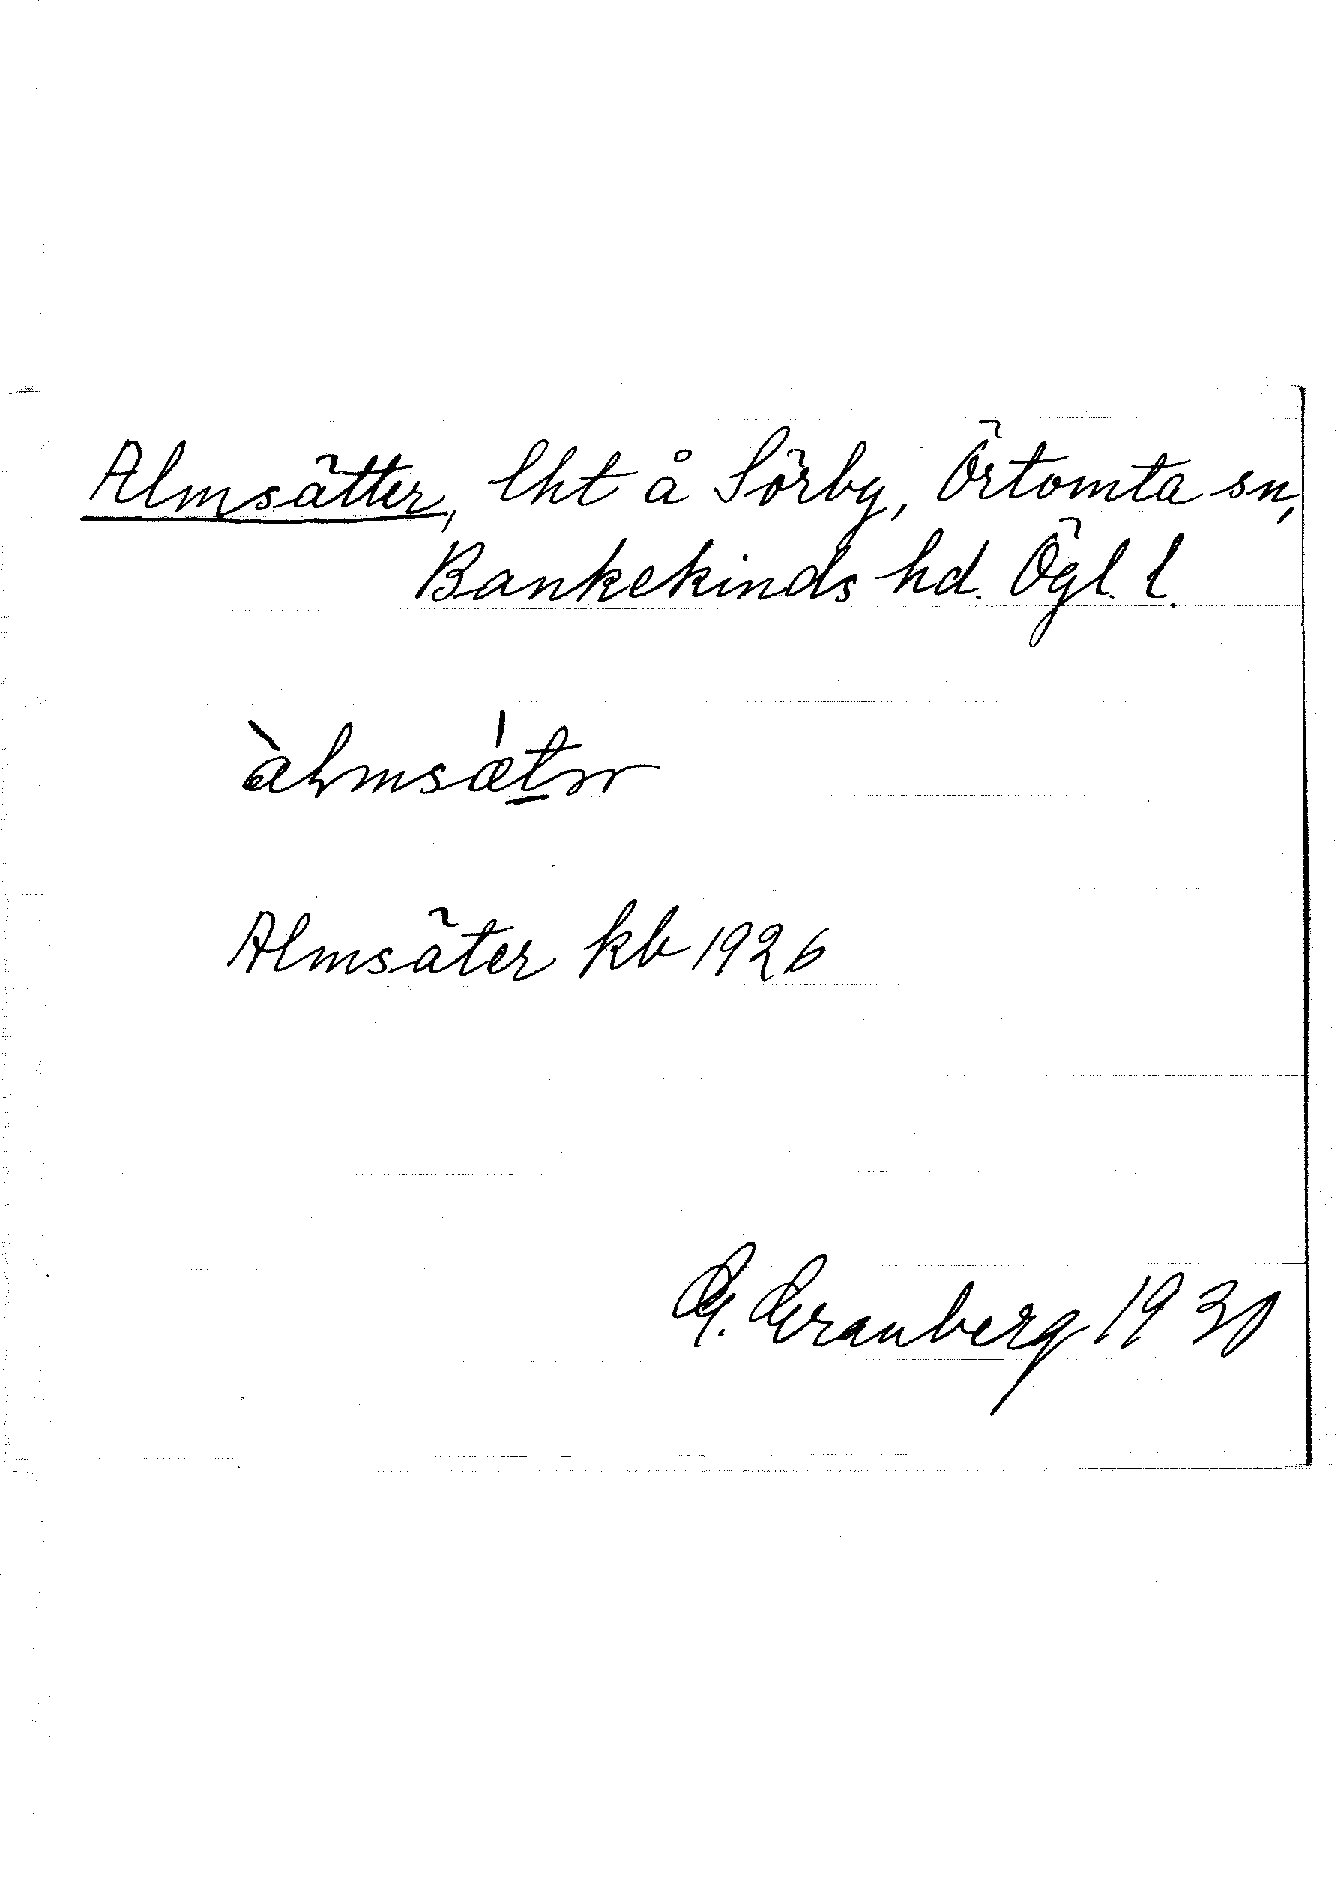 Almsätter, lht å Sörby, Örtomta sn,
Bankekinds hd. Ögl. l.
Almsäter kb 1926
G. Granberg 1930